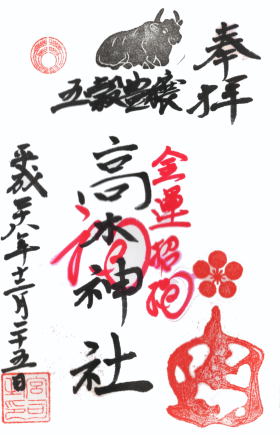 奉拝
五穀豊穣
金運招福
高木神社
平成二十八年十二月二十五日